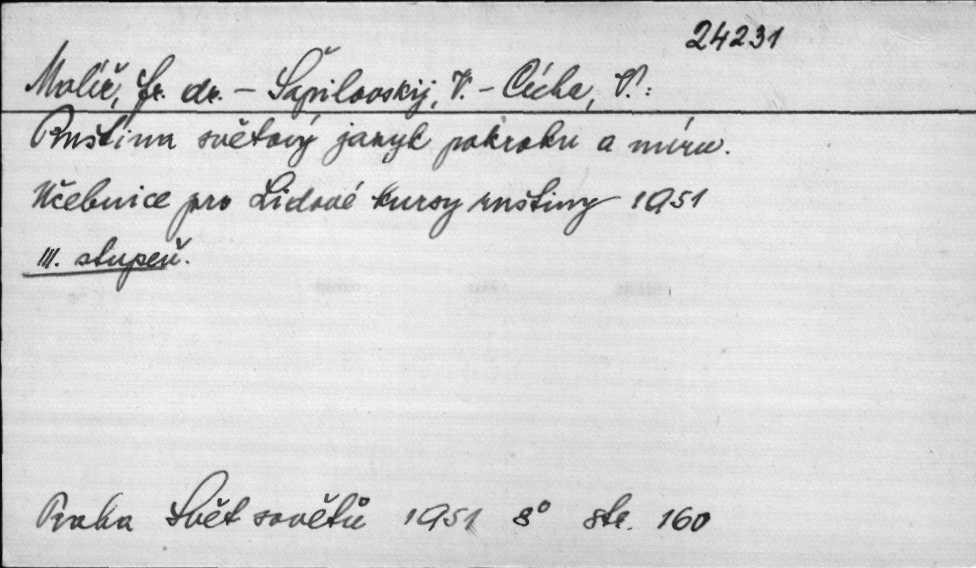 24231
Malíř, fr. dr. – Šapilovskij, V. – Cícha, V.:
Ruština světový jazyk pokroku a míru.
Učebnice pro Lidové kursy ruštiny 1951
III. stupeň.
Praha Svět sovětů 1951 8° str. 160